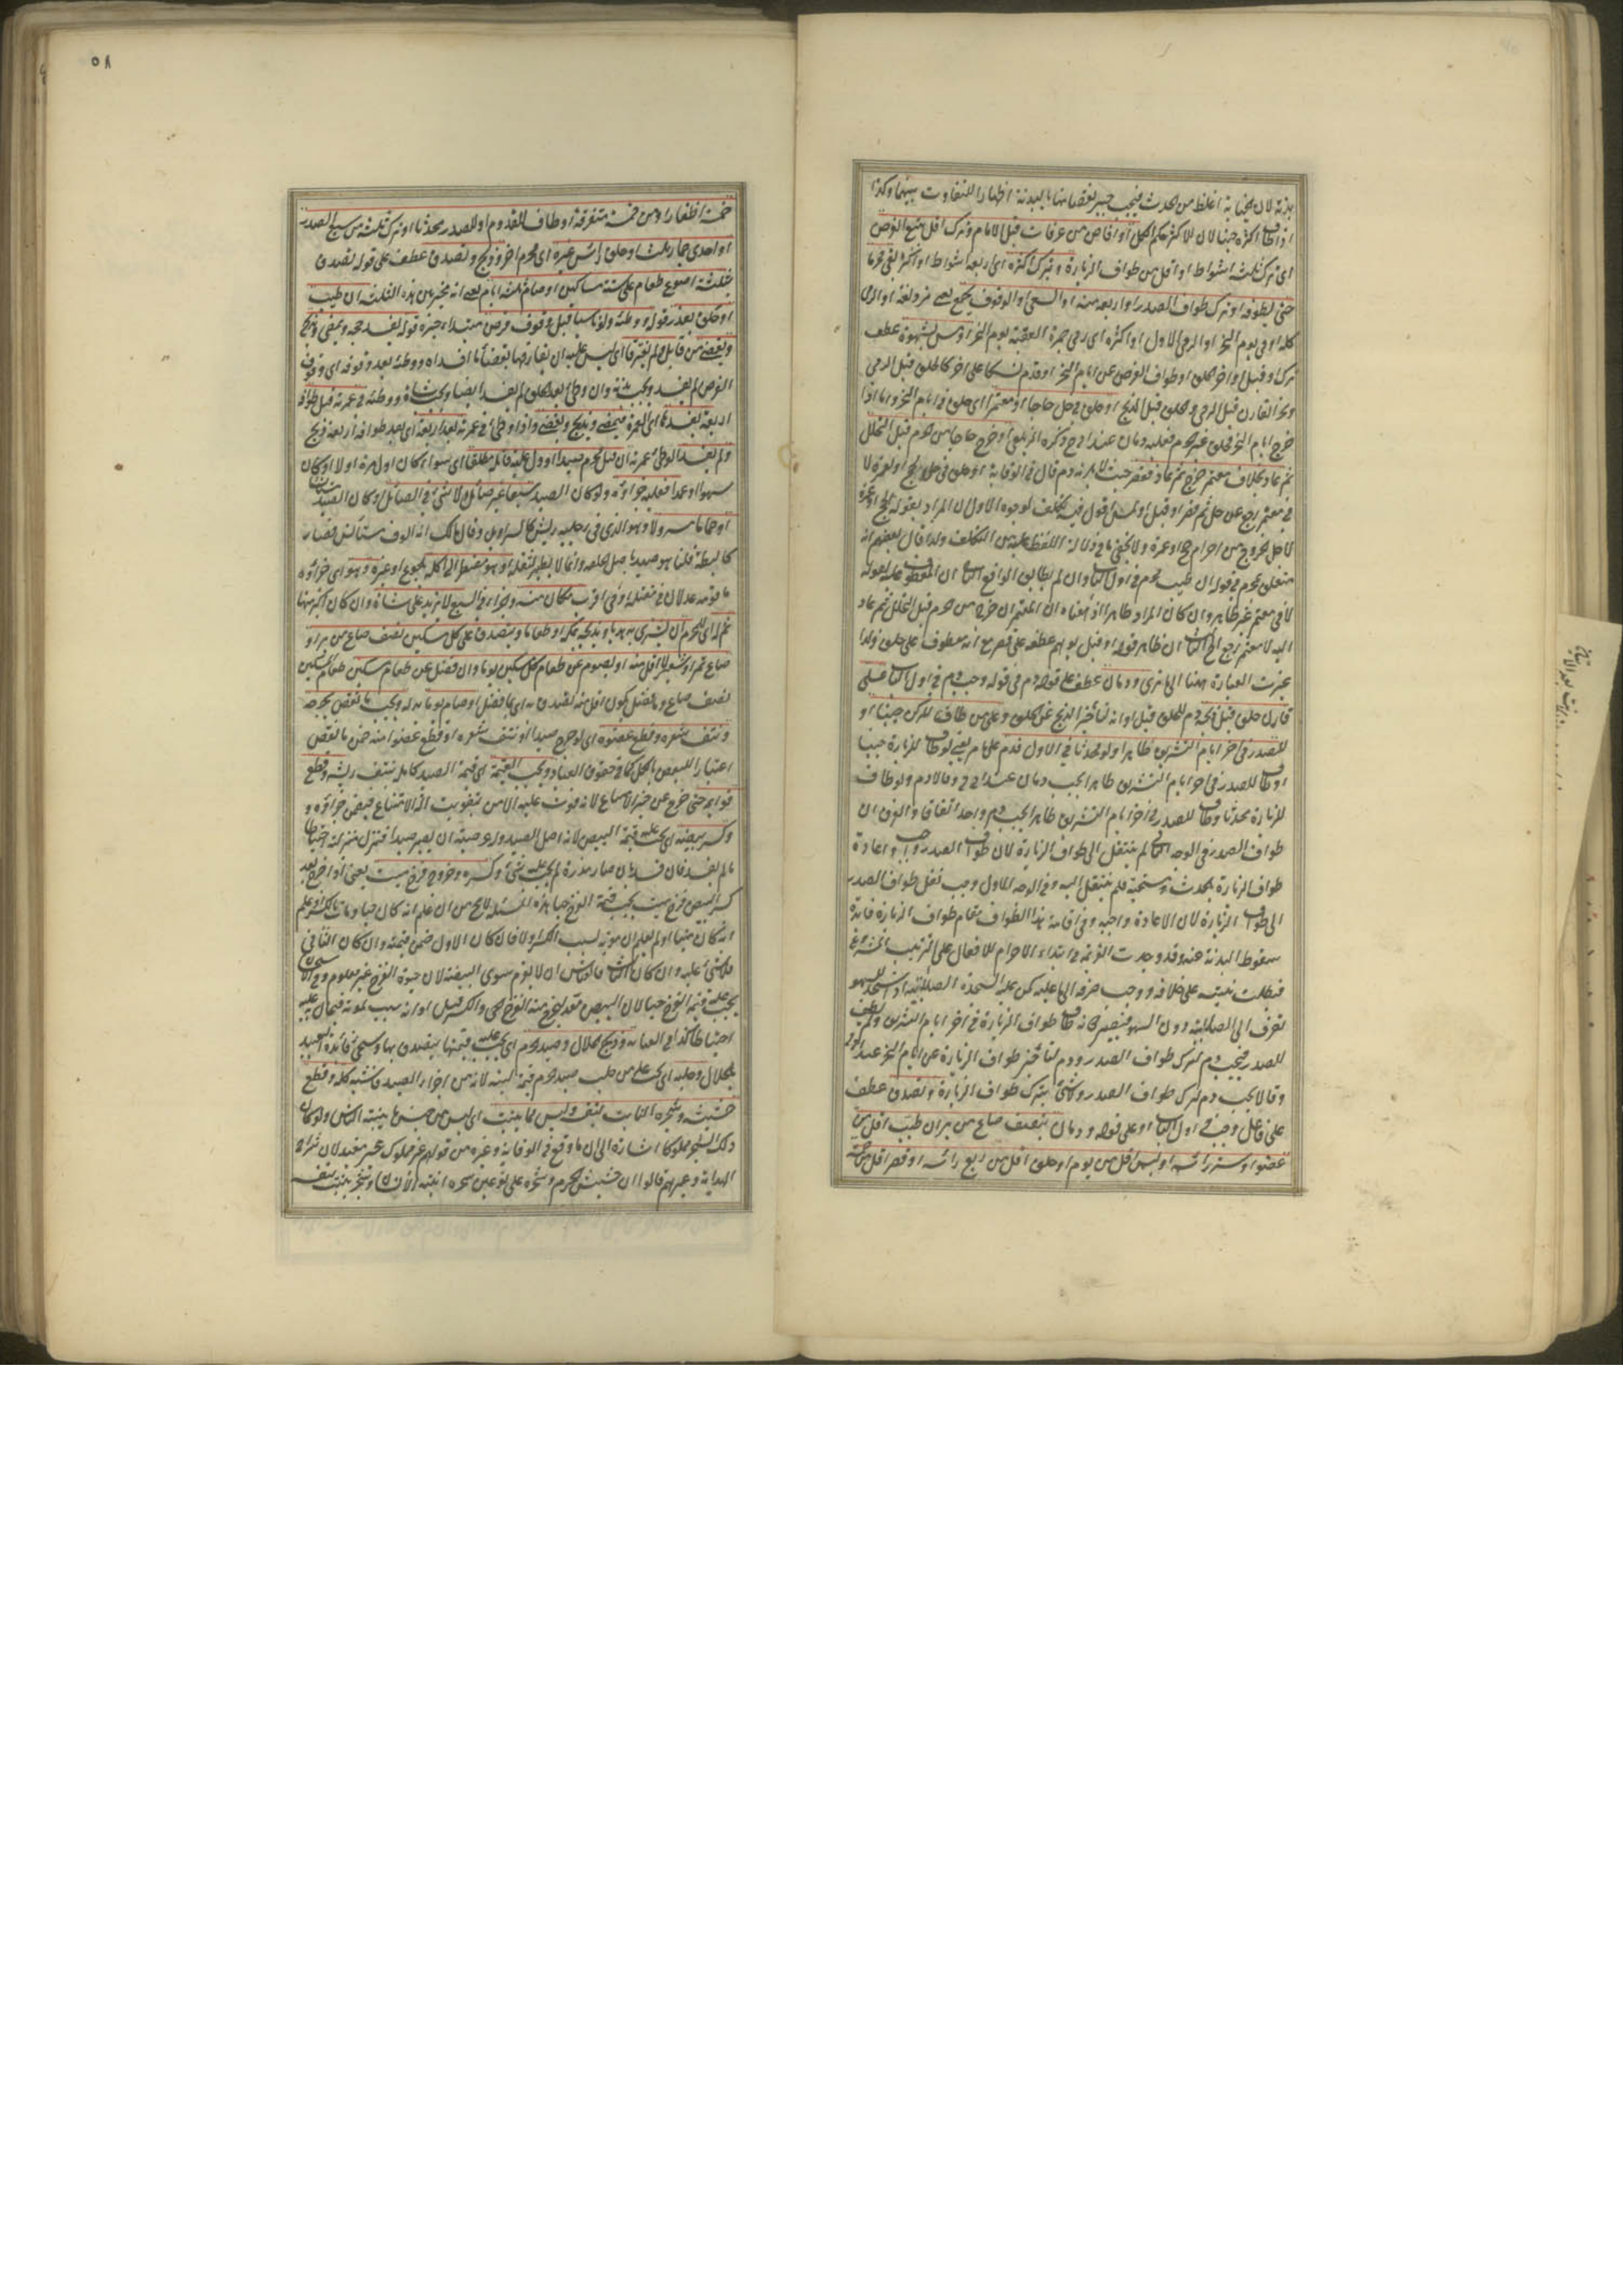 بدنة لان الجنابة اغلظ من الحدث فيجب جبر نقصانها بالبدنة اظهارا للتفاوت بينهما وكذا
اذا طاف اكثره جنبا لان للاكثر حكم الكل او افاض من عرفات قبل الامام وترك اقل سبع الفرض
اى ترك ثلثة اشواط او اقل من طواف الزيارة وبترك اكثره اى اربعة اشواط او اكثر بقى محرما
حتى يطوفه او ترك طواف الصدر او اربعة منه او السعى او الوقوف بجمع يعنى مزدلفة او الرمى
كله او فى يوم النحر او الرمى الاول او اكثره اى رمى جمرة العقبة يوم النحر او مس بشهوة عطف
ترك او قبل او اخر الحلق او طواف الفرض عن ايام النحر او قدم نسكا على اخر كالحلق قبل الرمى
ونحر القارن قبل الرمى والحلق قبل الذبح او حلق فى حل حاجا او معتمرا اى حلق فى ايام النحر واما اذا
خرج ايام النحر فحلق فى غير الحرم فعليه دمان عند ابى ح ذكره الزيلعى او خرج حاجا من الحرم قبل التحلل
ثم عاد بخلاف معتمر خرج ثم عاد فقصر حيث لا يلزمه دم قال فى الوقاية او حلق فى حل بحج او عمرة لا
فى معتمر رجع من حل ثم قصر او قبل او لمس اقول فيه تكلف لوجوه الاول ان المراد بقوله بحج او عمرة
لاجل خروج من احرام حج او عمرة ولا يخفى ما فى دلالة اللفظ عليه من التكلف ولذا قال بعضهم انه
متعلق بمحرم فى قوله ان طيب محرم فى اول الباب وان لم يطابق الواقع الثانى ان المعطوف عليه لقوله
لا فى معتمر غير ظاهر وان كان المراد ظاهرا اذ معناه ان المعتمر ان خرج من الحرم قبل التحلل ثم عاد
اليه لا معتمر رجع الخ الثالث ان ظاهر قوله او قبل يوهم عطفه على قصر مع انه معطوف على حلق ولذا
غيرت العبارة ههنا الى ما ترى ودمان عطف على قوله دم فى قوله وجب دم فى اول الباب على
قارن حلق قبل ذبحه دم للحلق قبل اوانه دم لتأخير الذبح عن الحلق وعلى من طاف للركن جنبا و
للصدر فى اخر ايام التشريق طاهرا ولو محدثا فى الاول فدم على ما مر يعنى لو طاف للزيارة جنبا
وطاف للصدر فى اخر ايام التشريق طاهرا يجب دمان عند ابى ح وقالا دم ولو طاف
للزيارة محدثا وطاف للصدر فى اخر ايام التشريق طاهرا يجب دم واحد اتفاقا والفرق ان
طواف الصدر فى الوجه الثانى لم ينتقل الى طواف الزيارة لان طواف الصدر واجب واعادة
طواف الزيارة بالحدث مستحبة فلم ينتقل اليه وفى الوجه الاول وجب نقل طواف الصدر
الى طواف الزيارة لان الاعادة واجبة وفى اقامة هذا الطواف مقام طواف الزيارة فائدة
سقوط البدنة عنه وقد وجدت النية فى ابتداء الاحرام للافعال على الترتيب المشروع
فبطلت نيته على خلافه ووجب صرفه الى ما عليه كمن عليه السجدة الصلابية اذا سجد للسهو
تصرف الى الصلابية دون السهو فيصير كانه طاف طواف الزيارة فى اخر ايام التشريق ولم يطف
للصدر فيجب دم لترك طواف الصدر ودم لتأخير طواف الزيارة عن ايام النحر عند ابى ح
وقالا يجب دم لترك طواف الصدر ولا شئ بترك طواف الزيارة وتصدق عطف
على فاعل وجب فى اول الباب او على قوله ودمان بنصف صاع من بر ان طيب اقل من
عضو او ستر رأسه او لبس اقل من يوم او حلق اقل من ربع رأسه او قصر اقل من خمسة
٥٨
خمسة اظفار او من خمسة متفرقة او طاف للقدوم او للصدر محدثا او ترك ثلثة من سبع الصدر
او احدى جمار ثلث او حلق رأس غيره اى محرم اخر وذبح وتصدق عطف على قوله تصدق
بثلثة اصوع طعام على ستة مساكين او صام ثلثة ايام يعنى انه مخير بين هذه الثلثة ان طيب
او حلق بعذر قوله ووطئه ولو ناسيا قبل وقوف فرض مبتدأ خبره قوله يفسد حجه ويمضى ويذبح
ويقضى من قابل ولم يفترقا اى ليس عليه ان يفارقها بقضاء ما افسداه ووطئه بعد وقوفه اى وقوف
الفرض لم يفسد ويجب بدنة وان وطئ بعد الحلق لم يفسد ايضا ويجب شاة ووطئه فى عمرته قبل طوافه
اربعة يفسدها اى العمرة فيمضى ويذبح ويقضى واذا وطئ فى عمرته بعد اربعة اى بعد طوافه اربعة ذبح
ولم يفسد الوطئ عمرته ان قتل محرم صيدا او دل عليه قاتله مطلقا اى سواء كان اول مرة او لا او كان
سهوا او عمدا فعليه جزاؤه ولو كان الصيد سبعا غير صائل ولا شئ فى الصائل او كان الصيد مستأنسا
او حماما مسرولا وهو الذى فى رجليه ريش كالسراويل وقال مالك انه الوف مستأنس فصار
كالبطة قلنا هو صيد باصل الخلقة وانما لا يطير لثقله او هو مضطر الى اكله بجوع او غيره وهو اى جزاؤه
ما قومه عدلان فى مقتله او فى اقرب مكان منه وجزاء فى السبع لا يزيد على شاة وان كان اكبر منها
ثم له اى للمحرم ان يشترى به هديا ويذبحه بمكة او طعاما ويتصدق على كل مسكين نصف صاع من بر او
صاع تمر او شعير لا اقل منه او يصوم عن طعام كل مسكين يوما وان فضل عن طعام مسكين طعام المسكين
نصف صاع وما فضل يكون اقل منه تصدق به اى بما فضل او صام يوما بدله ويجب ما نقص بجرحه
ونتف شعره وقطع عضوه اى لو جرح صيدا او نتف شعره او قطع عضوا منه ضمن ما نقص
اعتبارا للبعض بالكل كما فى حقوق العباد ويجب القيمة اى قيمة الصيد كاملة بنتف ريشه وقطع
قوائمه حتى خرج عن حيز الامتناع لانه فوت عليه الامن بتفويت الة الامتناع فيضمن جزاؤه و
وكسر بيضه اى يجب عليه قيمة البيض لانه اصل الصيد وله عرضية ان يصير صيدا فنزل منزلته احتياطا
ما لم يفسد فان فسد بان صار مذرة لم يجب عليه شئ وكسره وخروج فرخ ميت يعنى اذا خرج بعد
كسر البيض فرخ ميت يجب قيمة الفرخ حيا هذه المسئلة لا تخ من ان علم انه كان حيا ومات بالكسر او علم
انه كان ميتا او لم يعلم ان موته بسبب الكسر او لا فان كان الاول ضمن قيمته وان كان الثانى
فلا شئ عليه وان كان الثالث فالقياس ان لا يغرم سوى البيضة لان حيوة الفرخ غير معلوم وفى الاستحسان
يجب عليه قيمة الفرخ حيا لان البيض معد ليخرج منه الفرخ الحى والكسر قبل اوانه سبب لموته فيحال عليه
احتياطا كذا فى العناية وذبح الحلال وصيد الحرم اى يجب عليه قيمتها يتصدق بها وسيجئ فائدة التقييد
بالحلال وحلبه اى يجب على من حلب صيد الحرم قيمة لبنه لانه من اجزاء الصيد فاشبه كله وقطع
حشيشه وشجره النابت بنفسه وليس مما ينبت اى ليس من جنس ما ينبته الناس ولو كان
ذلك الشجر مملوكا اشارة الى ان ما وقع فى الوقاية وغيره من قولهم غير مملوك غير مفيد لان شراح
الهداية وغيرهم قالوا ان حشيش الحرم وشجره على نوعين شجر انبته الانسان وشجر ينبت بنفسه